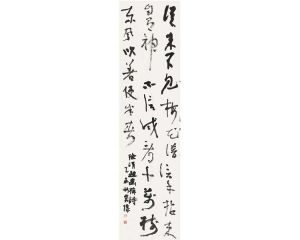 從来不見梅花譜信手拈来
自有神不信試看千萬樹
東風吹着便成春
徐渭題畫梅詩